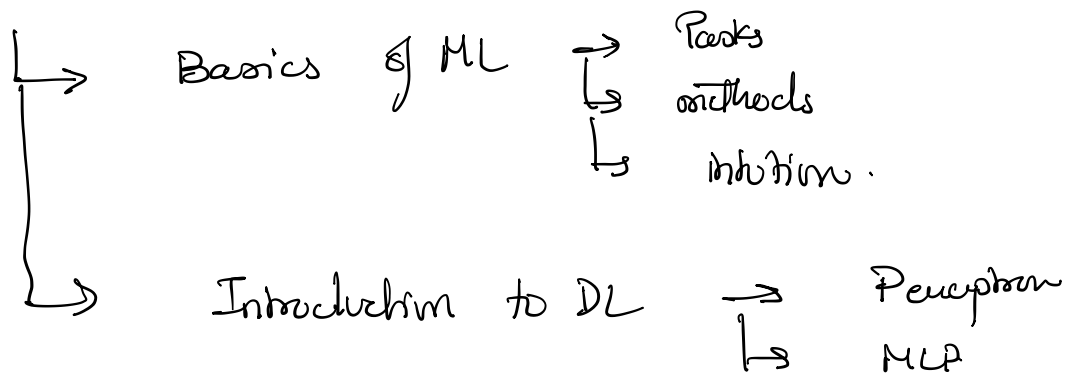 Basics of ML → Tasks
↳ methods
↳ intution.
Introduction to DL → Perceptron
↳ MLP